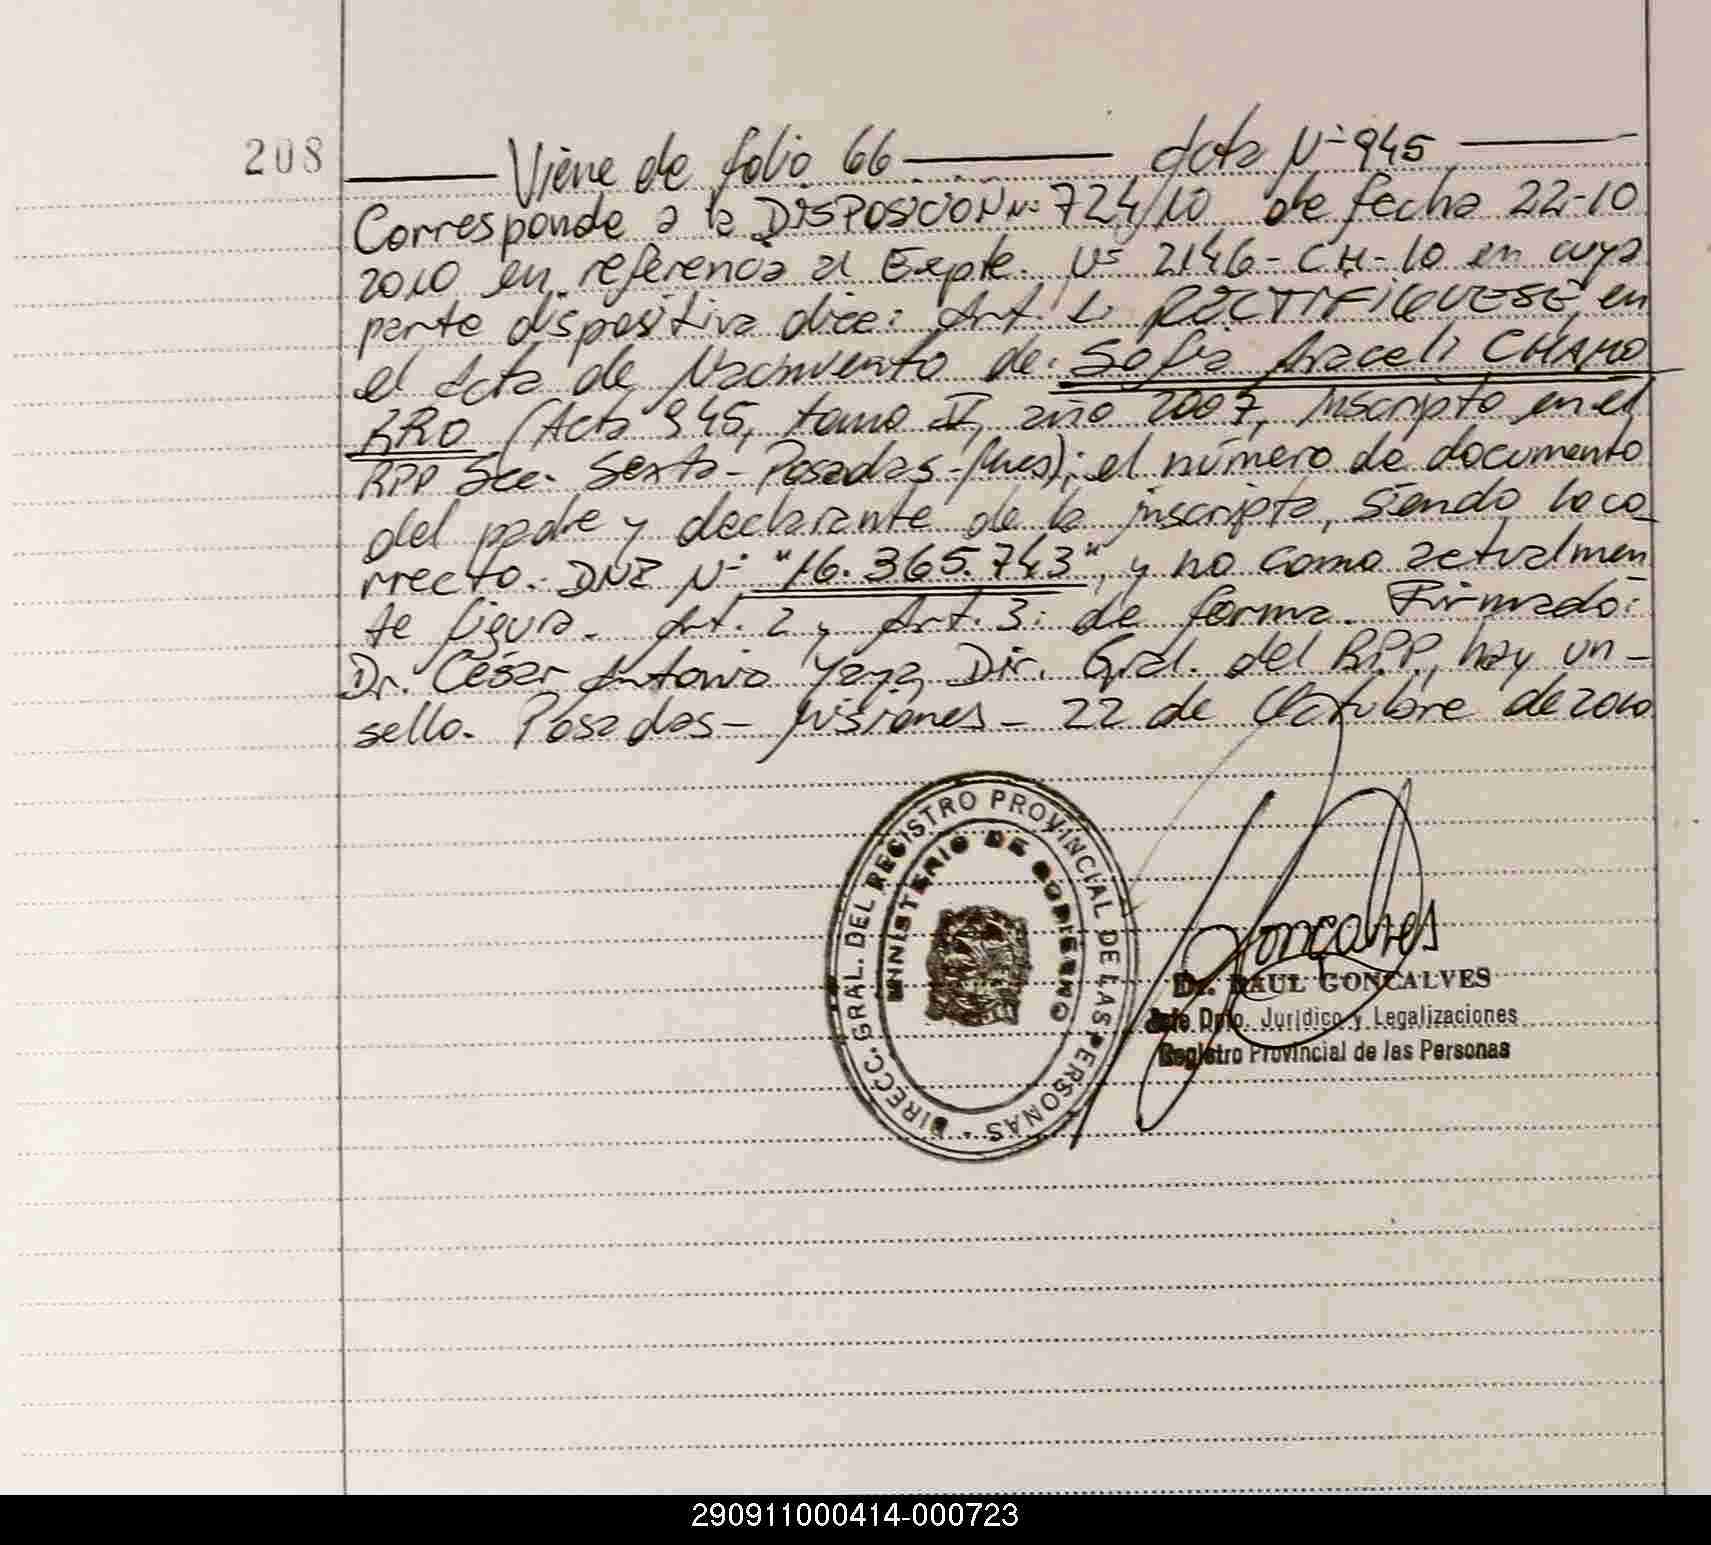 208
Viene de folio 66 Acta Nº 945
Corresponde a la DISPOSICION Nº 724/10 de fecha 22-10
2010 en referencia al Expte. Nº 2146-CH-10 en cuya
parte dispositiva dice: Art. 1: RECTIFIQUESE, en
el Acta de Nacimiento de: Sofia Araceli CHAMO
RRO (Acta 945, tomo IV, año 2007, Inscripto en el
RPP Scc. Sexta - Posadas - Mnes); el número de documento
del padre y declarante de la inscripta, siendo lo co_
rrecto.- DNI Nº "16.365.743", y no como actualmen
te figura. Art. 2 y Art. 3: de forma. Firmado:
Dr. César Antonio Yaya, Dir. Gral. del RPP, hay un -
sello. Posadas - Misiones - 22 de Octubre de 2010
DIRECC. GRAL. DEL REGISTRO PROVINCIAL DE LAS PERSONAS
MINISTERIO DE GOBIERNO
Goncalves
Dr. RAUL GONCALVES
Jefe Dpto. Jurídico y Legalizaciones
Registro Provincial de las Personas
290911000414-000723